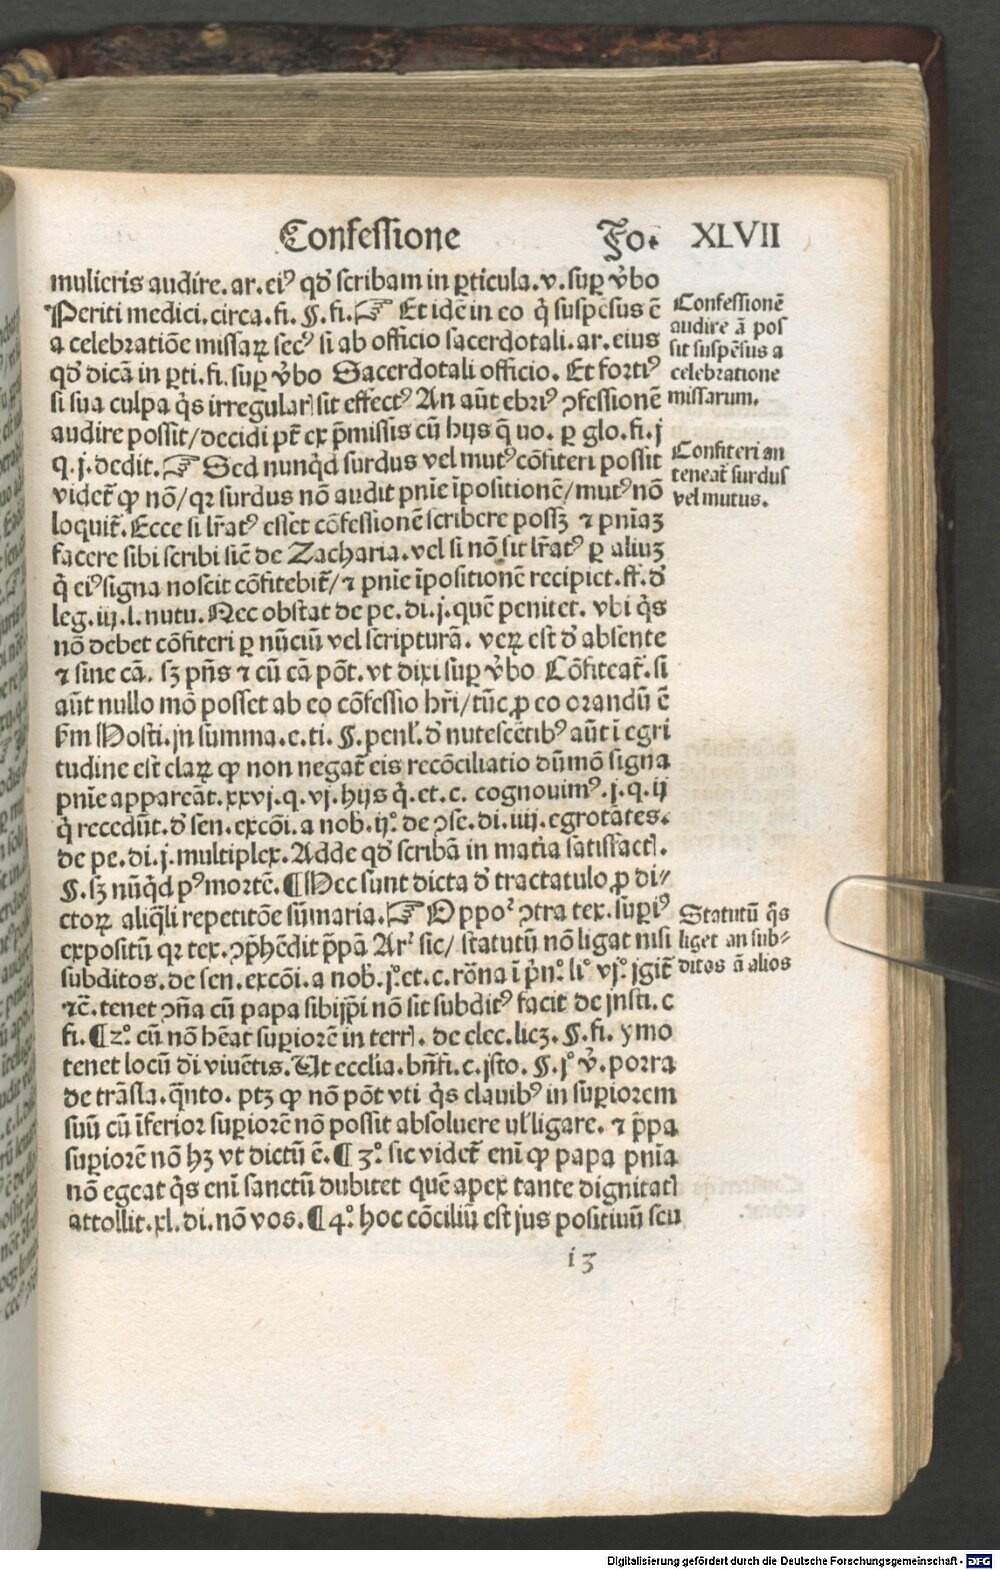 Confessione Fo. XLVII
mulieris audire. ar. eiꝰ qd̕ scribam in ꝑticula. v. suꝑ v̕bo
Periti medici. circa. fi. §. fi. ☞ Et idē in eo q̇ suspēsus ē
a celebratiōe missaꝝ secꝰ si ab officio sacerdotali. ar. eius
qd̕ dicā in ꝑti. fi. suꝑ v̕bo Sacerdotali officio. Et fortiꝰ
si sua culpa q̇s irregularꝭ sit effectꝰ An aūt ebriꝰ ꝯfessionē
audire possit/decidi pt̄ ex p̄missis cū hijs q̄ no. ꝑ glo. fi. j
q. j. dedit. ☞ Sed nunqd̕ surdus vel mutꝰ cōfiteri possit
videt᷑ ꝙ nō/qꝛ surdus nō audit pnīe īpositionē/mutꝰ nō
loquit᷑. Ecce si lr̄atꝰ esset cōfessionē scribere possꝫ ⁊ pniaꝫ
facere sibi scribi sic̄ de Zacharia. vel si nō sit lr̄atꝰ ꝑ aliuꝫ
q̇ eiꝰ signa noscit cōfitebit᷑/⁊ pnīe īpositionē recipiet. ff. d̕
leg. iij. l. nutu. Nec obstat de pe. di. j. quē penitet. vbi q̇s
nō debet cōfiteri ꝑ nūciū vel scripturā. veꝝ est d̕ absente
⁊ sine cā. sꝫ pn̄s ⁊ cū cā pōt. vt dixi suꝑ v̕bo Cōfiteat᷑. si
aūt nullo mō posset ab eo cōfessio hr̄i/tūc ꝓ eo orandū ē
ẜm Hosti. jn summa. e. ti. §. penl̕. d̕ nutescētibꝰ aūt ī egri
tudine est claꝝ ꝙ non negat᷑ eis recōciliatio dūmō signa
pnīe appareāt. xxvj. q. vj. hijs q̇. et. c. cognouimꝰ. j. q. ij
q̇ recedūt. d̕ sen. excōi. a nob. ijº. de ꝯse. di. iiij. egrotātes.
de pe. di. j. multiplex. Adde qd̕ scribā in mat̕ia satisfactꝭ.
§. sꝫ nūqd̕ pꝰ mortē. ¶ Hec sunt dicta d̕ tractatulo ꝓ di⸗
ctoꝝ aliq̄li repetitōe sūmaria. ☞ Oppoꝛ ꝯtra tex. suꝑiꝰ
expositū qꝛ tex. ꝯp̄hēdit p̄pā Arꝛ sic/ statutū nō ligat nisi
subditos. de sen. excōi. a nob̕. jº. et. c. rōna ī p̄nº. liº vjº. jgit᷑
⁊c̄. tenet ꝯn̄a cū papa sibijp̄i nō sit subditꝰ facit de jnsti. c
fi. ¶ 2º. cū nō hēat suꝑiorē in terrꝭ. de elec. licꝫ. §. fi. ymo
tenet locū dī viuētis. Ut ecclia. bn̄fi. c. jsto. §. jº v̕. porra
de trāsla. q̄nto. ptꝫ ꝙ nō pōt vti q̇s clauibꝰ in suꝑiorem
suū cū īferior suꝑiorē nō possit absoluere ul̕ ligare. ⁊ p̄pa
suꝑiorē nō hꝫ vt dictū ē. ¶ 3º. sic videt᷑ enī ꝙ papa pnīa
nō egeat q̇s enī sanctū dubitet quē apex tante dignitatꝭ
attollit. xl. di. nō vos. ¶ 4º. hoc cōciliū est jus positiuū seu
i3
Confessionē
audire ā pos
sit suspēsus a
celebratione
missarum.
Confiteri an
teneat᷑ surdus
vel mutus.
Statutū q̇s
liget an sub⸗
ditos ā alios
Digitalisierung gefördert durch die Deutsche Forschungsgemeinschaft - DFG